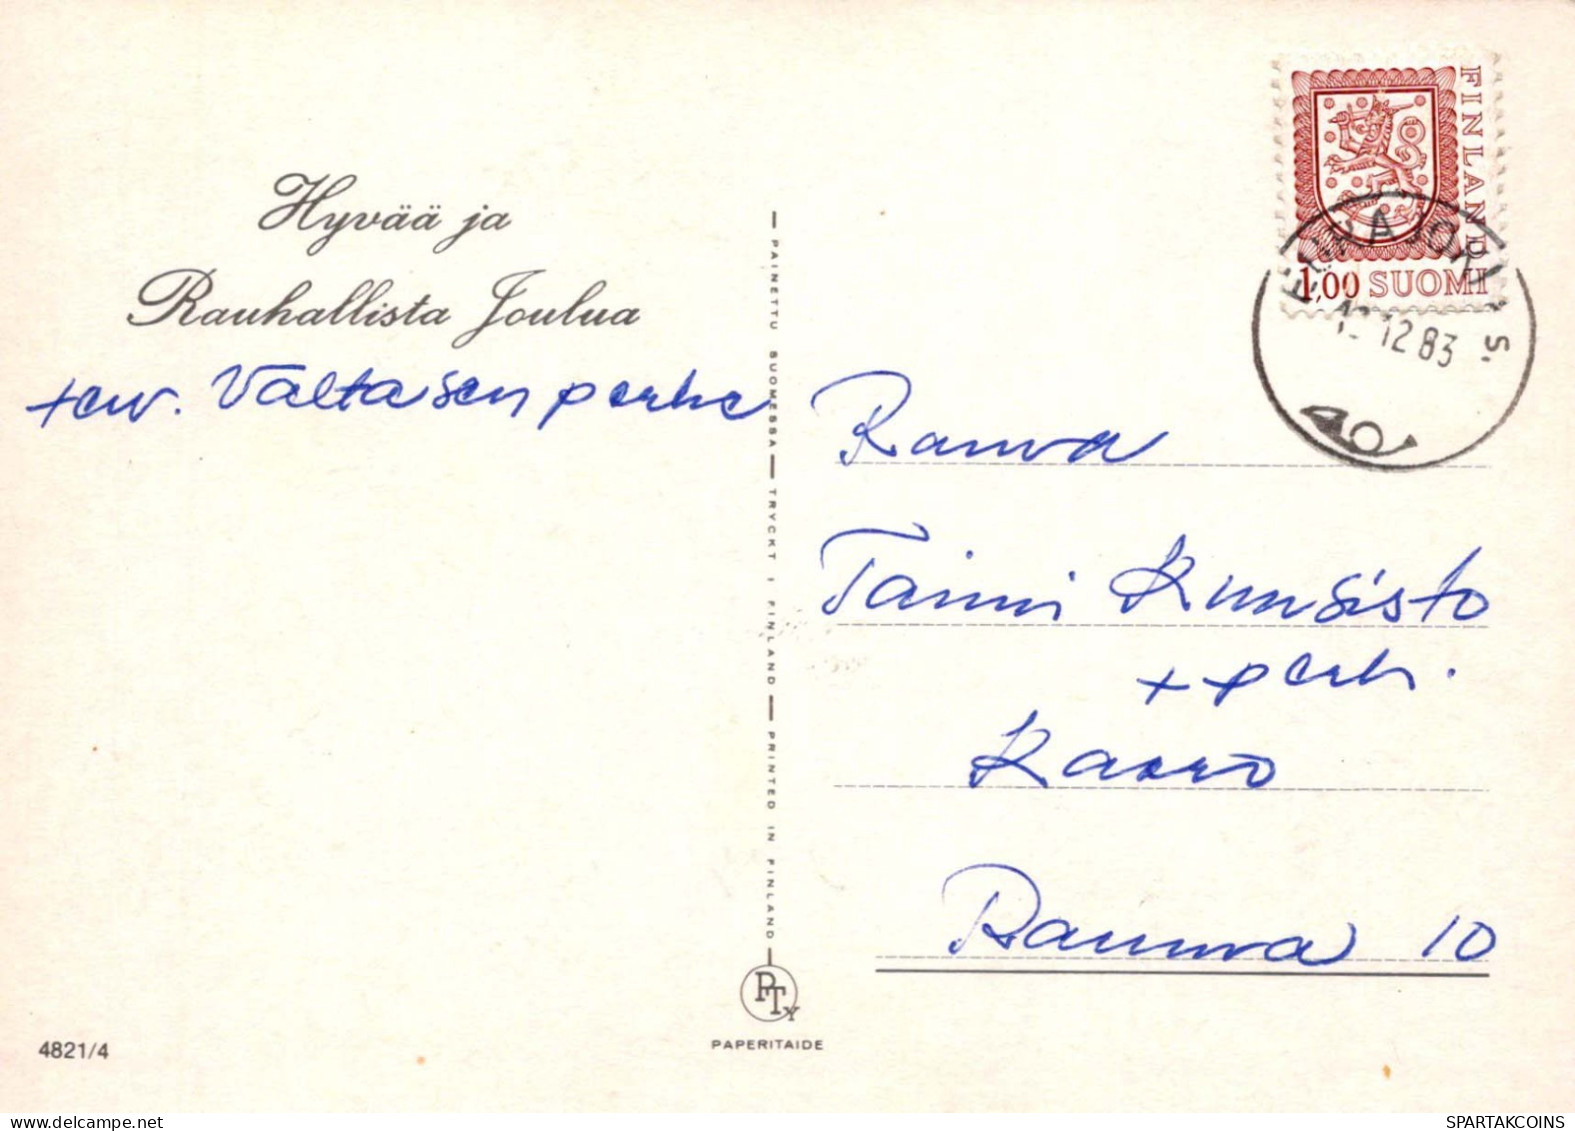 Hyvää ja
Rauhallista Joulua
tov. Valtasen perhe
PAINETTU SUOMESSA — TRYCKT I FINLAND — PRINTED IN FINLAND
FINLAND
1,00 SUOMI
EURAJOKI
12 83
S.
Rauva
Taimi Kuusisto
+ perh.
Kaaro
Rauma 10
PTY
PAPERITAIDE
4821/4
SPARTAKCOINS